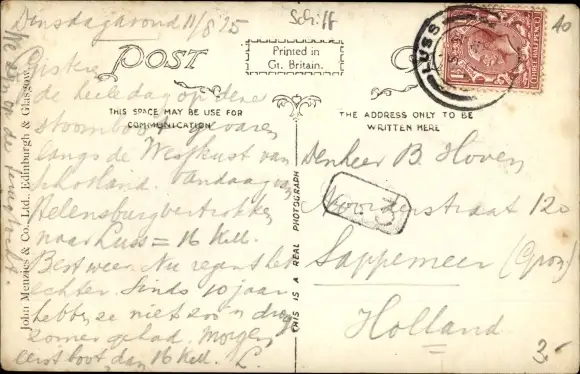 Dinsdagavond 11/8 '25
Schiff
40
POST
Printed in
Gt. Britain.
LUSS
THREE HALFPENCE
THIS SPACE MAY BE USE FOR
COMMUNICATION
THE ADDRESS ONLY TO BE
WRITTEN HERE
de heele dag op deze
stoomboot gevaren
langs de Westkust van
Schotland. Vandaag van
Helensburg vertrokken
naar Luss = 16 Kill.
Best weer. Nu regent het
echter. Sinds 10 jaar
hebben ze niet zoo'n droge
zomer gehad. Morgen
eerst boot, dan 16 Kill. L.
John Menzies & Co., Ltd., Edinburgh & Glasgow.
THIS IS A REAL PHOTOGRAPH
Denheer B. Hoven
Noorderstraat 120
3
Sappemeer (Gron)
Holland
3.-